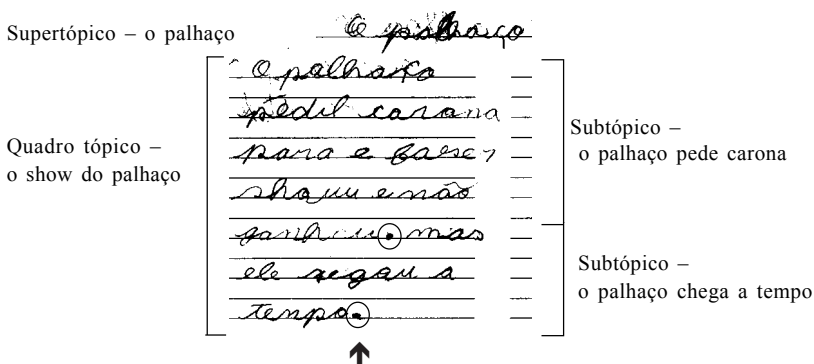 Supertópico – o palhaço
O palhaço
Quadro tópico –
o show do palhaço
O palhaço
pedil carona
para e faser
e não
mas
ele xegau a
tempo.
Subtópico –
o palhaço pede carona
Subtópico –
o palhaço chega a tempo